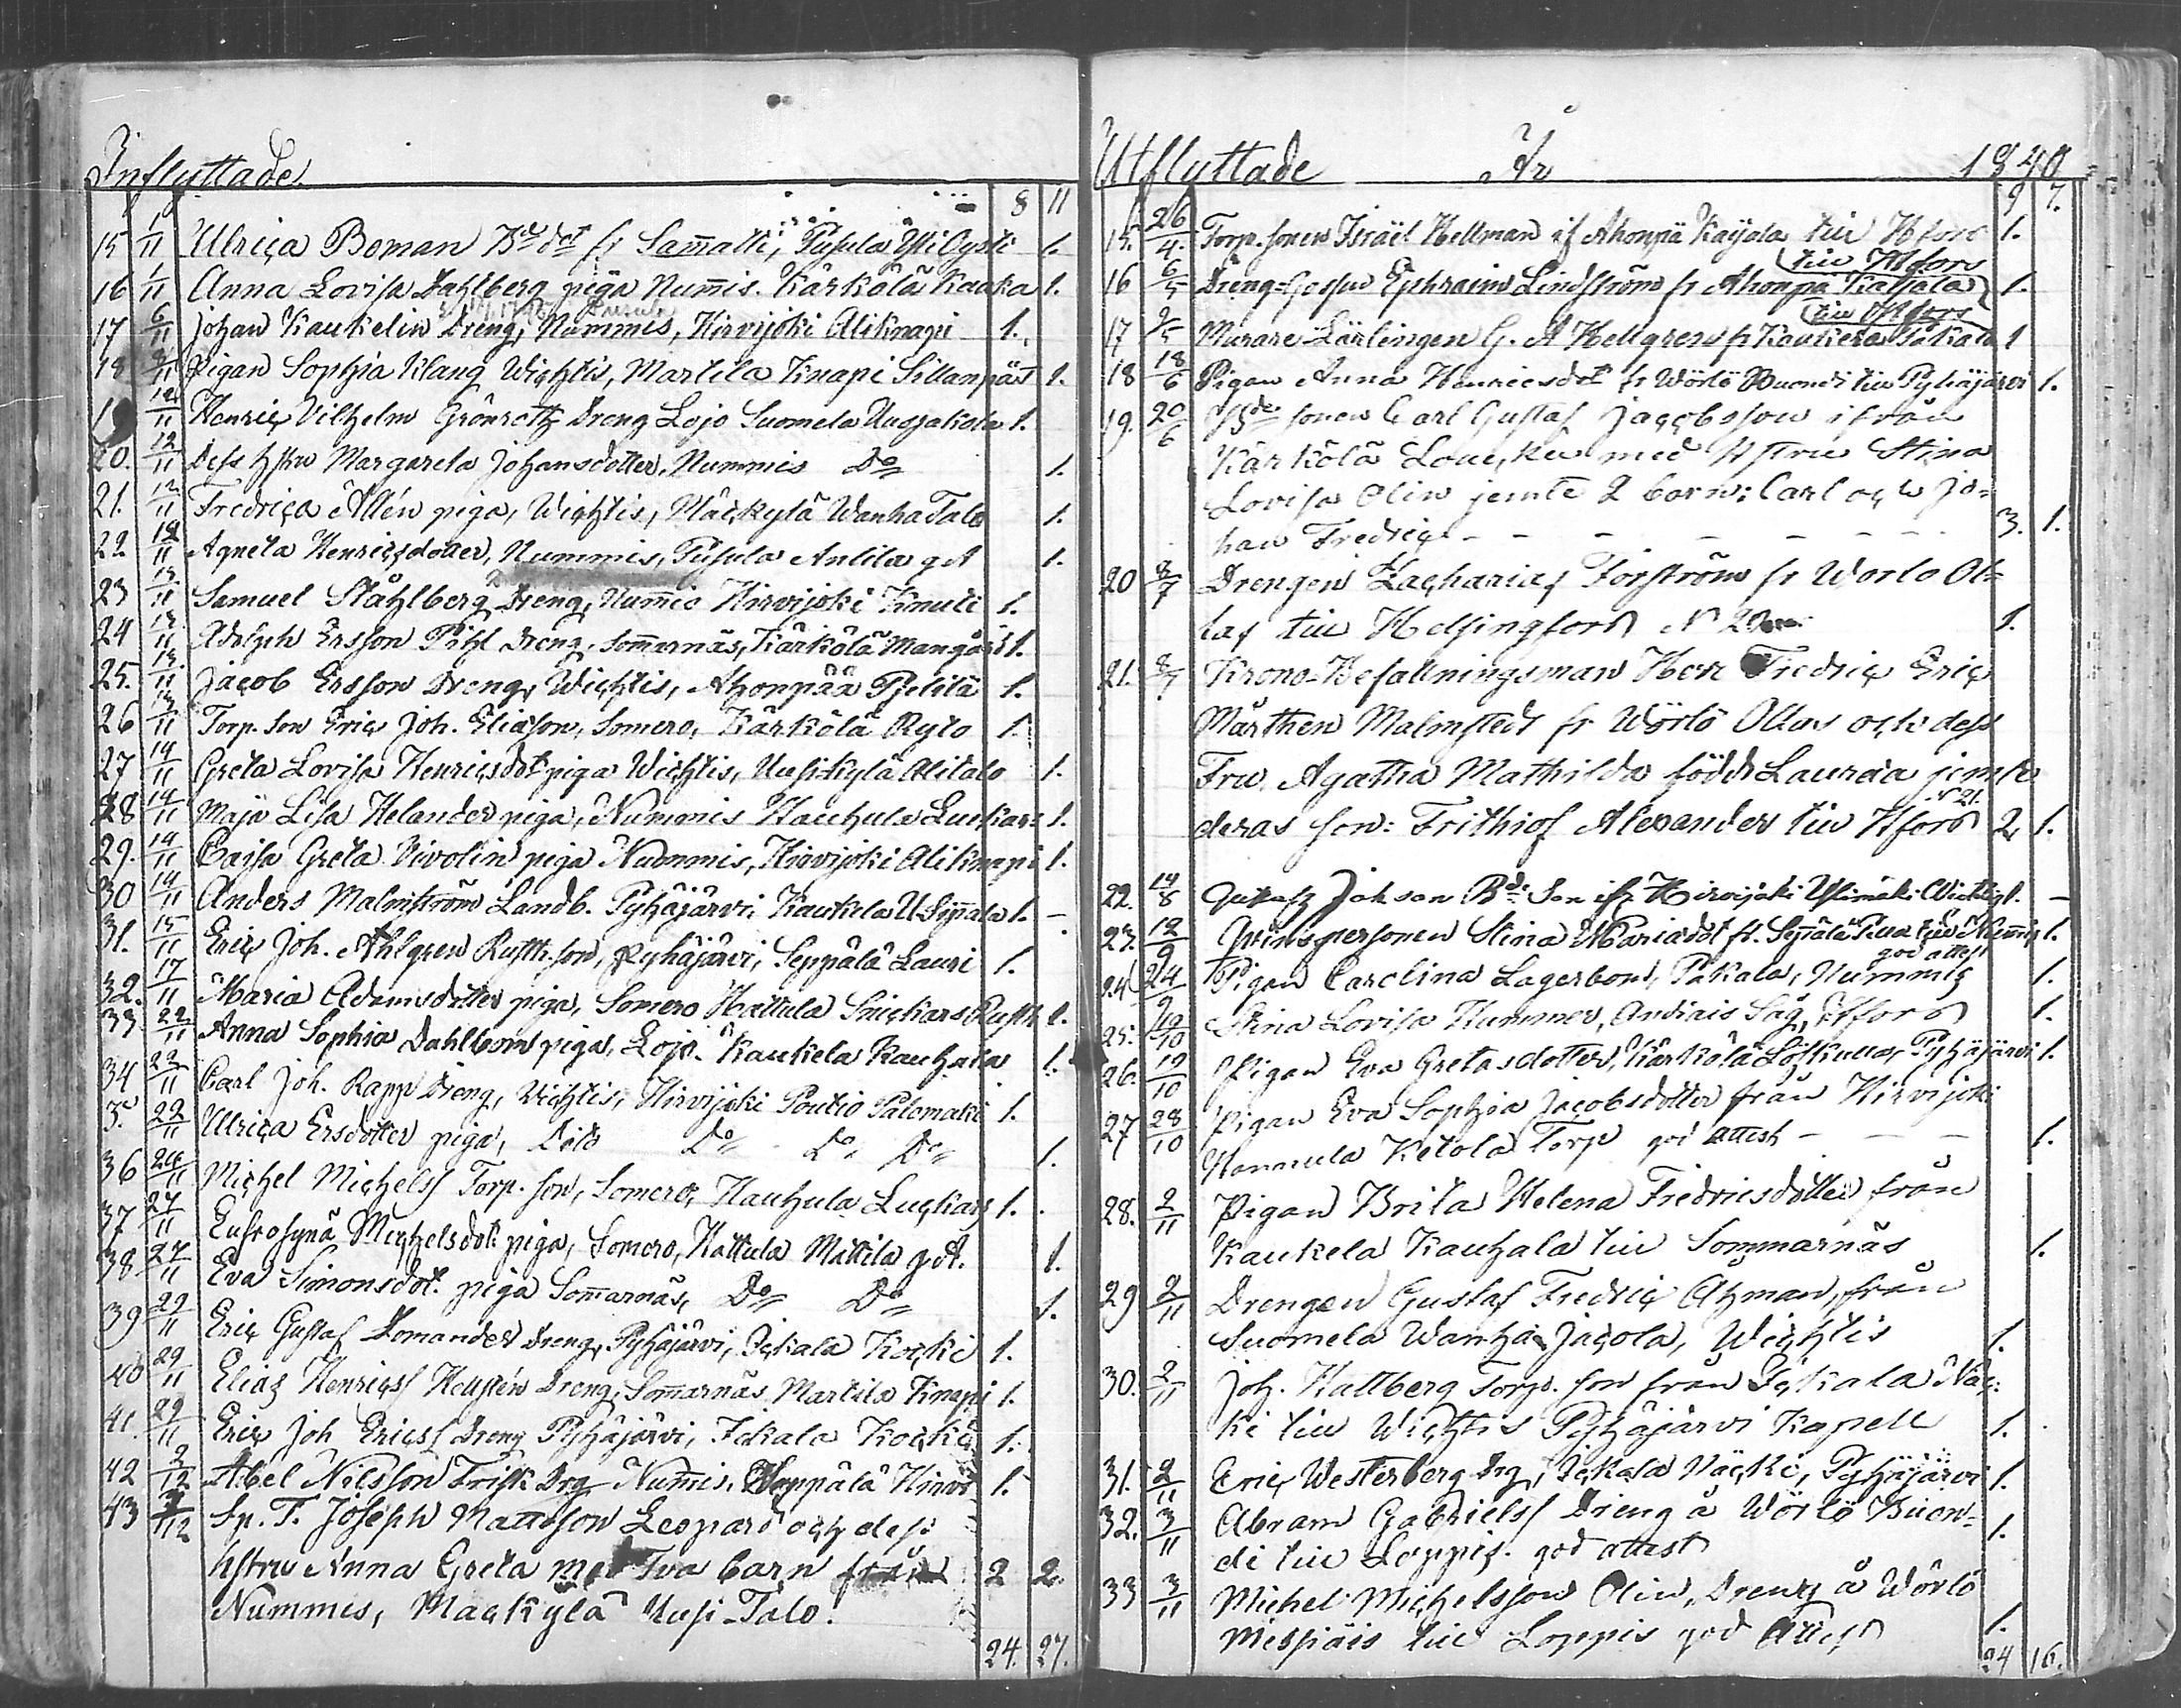 Inflyttade
8 11
15 1/11 Ulrica Boman Bdedotr fr Sammatti, Pusula Yli Gysti 1.
16 1/11 Anna Lovisa Dahlberg piga Nummis. Kärkölä Kaaka 1.
17 6/11 Johan Kaukelin Dreng, Nummis, Hirvijoki Aliknapi 1.
18 8/11 Pigan Sophia Klang Wichtis, Martila Knapi Sillanpää 1.
19 12/11 Henric Vilhelm Grönroth Dreng Lojo Suomela Uusjakola 1.
20. 12/11 Dess hstru Margareta Johansdotter, Nummis Do 1.
21. 12/11 Fredrica Allén piga, Wichtis, Mäckylä Wanha Talo 1.
22 12/11 Agneta Henricsdotter, Nummis, Pusula Anlila gd 1.
23 13/11 Samuel Ståhlberg Dreng, Nummis Hirvijoki Knuti 1.
24 13/11 Adolph Ersson Pihl Dreng, Sommarnäs, Kärkölä Mangård 1.
25. 13/11 Jacob Ersson Dreng, Wichtis, Ahonpää Pjelilä 1.
26 13/11 Torp. Son Eric Joh. Eliasson, Somero, Kärkölä Ryto 1.
27 14/11 Greta Lovisa Henricsdot piga Wichtis, Uusikylä Alitalo 1.
28 14/11 Maja Lisa Helander piga, Nummis Hauhula Luckars 1.
29. 14/11 Cajsa Greta Vivolin piga Nummis, Hirvijoki Aliknapi 1.
30 14/11 Anders Malmström Landb. Pyhäjärvi, Kaukela 1. -
31. 15/11 Eric Joh. Ahlgren Rusth.son, Pyhäjärvi, Seppälä Lauri 1.
32. 17/11 Maria Adamsdotter piga, Somero Hattula Snickars Rusth 1.
33 22/11 Anna Sophia Dahlbom piga, Lojo. Kaukela Kauhala 1.
34 22/11 Carl Joh. Rapp Dreng, Wichtis, Hirvijoki Poutio Palomäki 1.
3. 22/11 Ulrica Ersdotter piga, Dito Do Do Do 1.
36 24/11 Michel Michelss Torp. son, Somero, Hauhula Luckars 1.
37 27/11 Eufrosyna Michelsdot. piga, Somero, Hattula Mattila gd. 1.
38 27/11 Eva Simonsdot. piga Sommarnäs, Do Do 1.
39 29/11 Eric Gustaf Domander Dreng, Pyhäjärvi, Ickala Kocki 1.
40 29/11 Elias Henricss Hellstén Dreng, Sommarnäs Martila Knapi 1.
41. 29/11 Eric Joh Ericss Dreng Pyhäjärvi, Ickala Kocki 1.
42 2/12 Abel Nilsson Frisk Drg Nummis. Hirvi 1.
43 7/12 Sp. T. Joseph Mattsson Leopard och dess
hstru Anna Greta med Tva barn från 2 2.
Nummis, Mackylä Uusi-Talo.
24. 27.
Utflyttade År 1840
9 7.
15. 26/4. Torp. sonen Israël Hellman if Ahonpä Kaijala till Hfors 1.
till Hfors
16 6/5 Dreng=Gossen Ephraim Lindström fr Ahonpä Kaijala 1.
till Hfors
17 9/5 Murare Lärlingen G. A Hellgren fr Kaukela Påkala 1
18 18/6 Pigan Anna Henricsdotr fr Wörlö Buondi till Pyhäjärvi 1.
19. 20/6 Bde sonen Carl Gustaf Jacobsson ifrån
Kärkölä Louckee med Hstru Stina
Lovisa Olin jemte 2 barn: Carl och Jo-
han Fredric - - - - - - - 3. 1.
20 8/7 Drengen Zacharias Forström fr Worlo Ol-
las till Helsingfors N 20 1.
21. 8/7 Krono-Befallningsman Herr Fredric Eric
Mårthen Malmstedt fr Wörlö Ollas och dess
Fru Agatha Mathilda född Laurœa jemte
N 21.
deras son: Frithiof Alexander till Hfors 2 1.
22. 14/8 Gustaf Johsson Bde Son ifr Hirvijoki Ylimäki Wichtis 1. -
23. 12/9 Qvinspersonen Stina Mariadot fr. Seppälä till Nummis 1.
god attest
24 24/9 Pigan Carolina Lagerbom, Påkala, Nummis 1.
25. 10/10 Stina Lovisa Hummer, Andiais Såg, Hfors 1.
26. 19/10 Pigan Eva Gretasdotter, Kärkölä Löfkulla, Pyhäjärvi 1.
27 28/10 Pigan Eva Sophia Jacobsdotter från Hirvijoki
Hannula Ketola Torp god attest - - - 1.
28. 2/11 Pigan Brita Helena Fredricsdotter från
Kaukela Kauhala till Sommarnäs 1.
29 2/11 Drengen Gustaf Fredric Åhman, från
Suomela Wanha Jacola, Wichtis 1.
30. 2/11 Joh. Hallberg Torp. son från Ickala Näc-
ki till Wichtis Pyhäjärvi Kapell 1.
31. 2/11 Eric Westerberg Drg, Ickala Näcki, Pyhäjärvi 1.
32. 3/11 Abram Gabrielss Dreng å Wörlö Buon-
di till Loppis. god attest 1.
33 3/11 Michel Michelsson Olin, Dreng å Wörlö
Mespiäis till Loppis god Attest 1.
24 16.